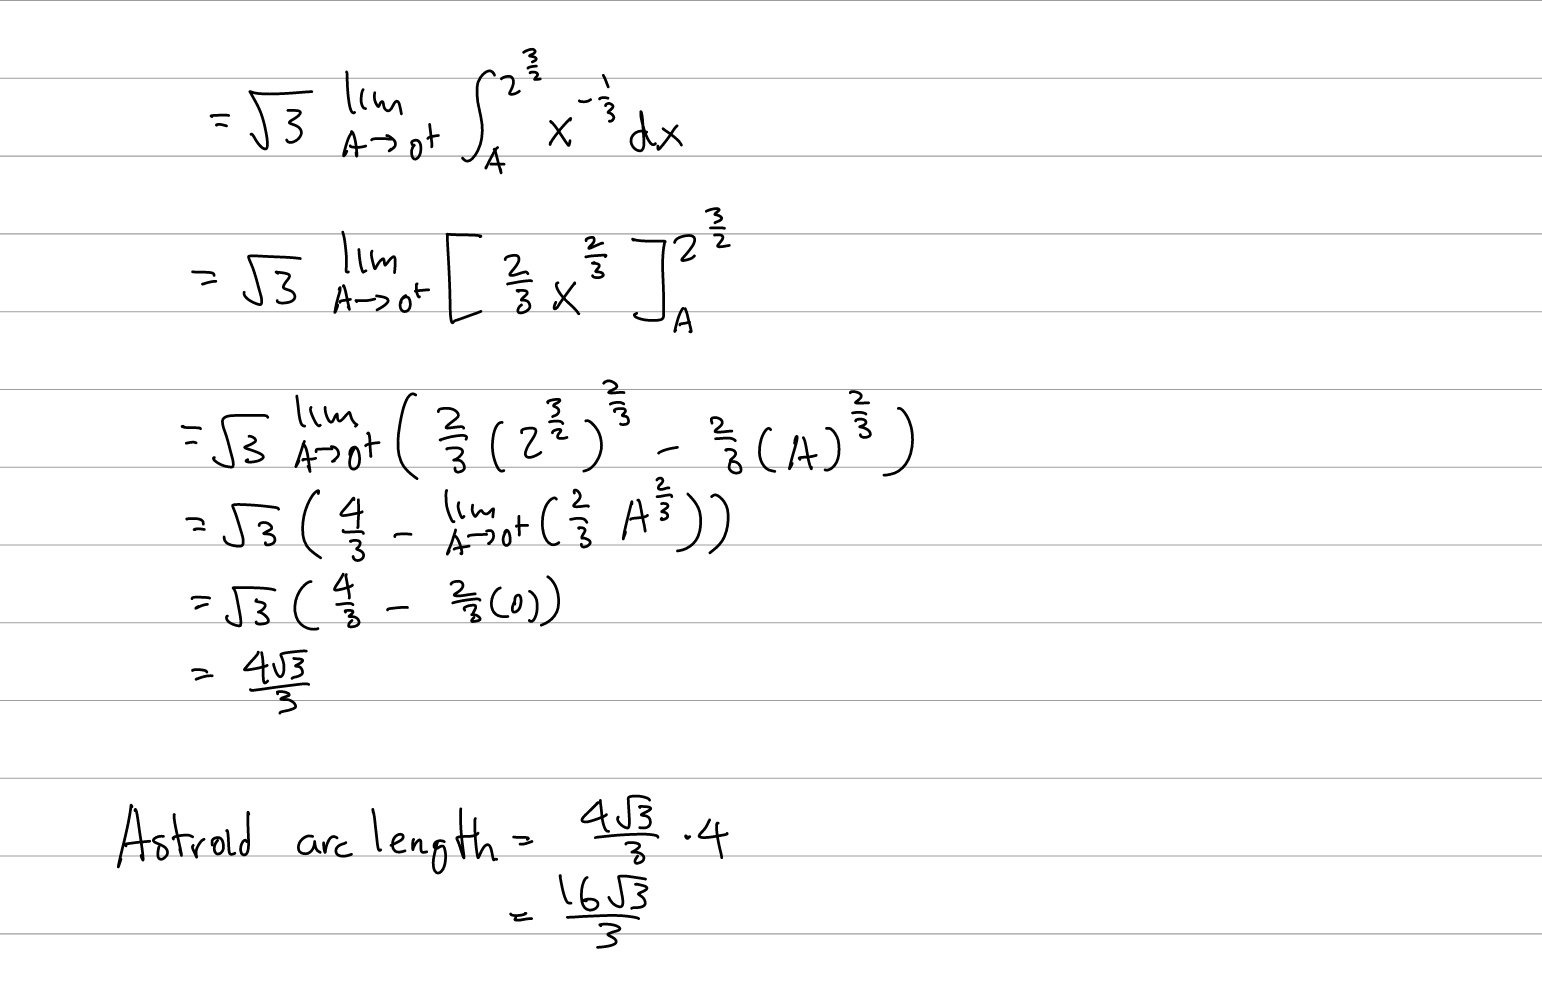 = √3 lim_{A→0⁺} ∫_A^{2^{3/2}} x^{-1/3} dx
= √3 lim_{A→0⁺} [ 2/3 x^{2/3} ]_A^{2^{3/2}}
= √3 lim_{A→0⁺} ( 2/3 (2^{3/2})^{2/3} - 2/3 (A)^{2/3} )
= √3 ( 4/3 - lim_{A→0⁺} ( 2/3 A^{2/3} ))
= √3 ( 4/3 - 2/3 (0))
= 4√3/3
Astroid arc length = 4√3/3 · 4
= 16√3/3